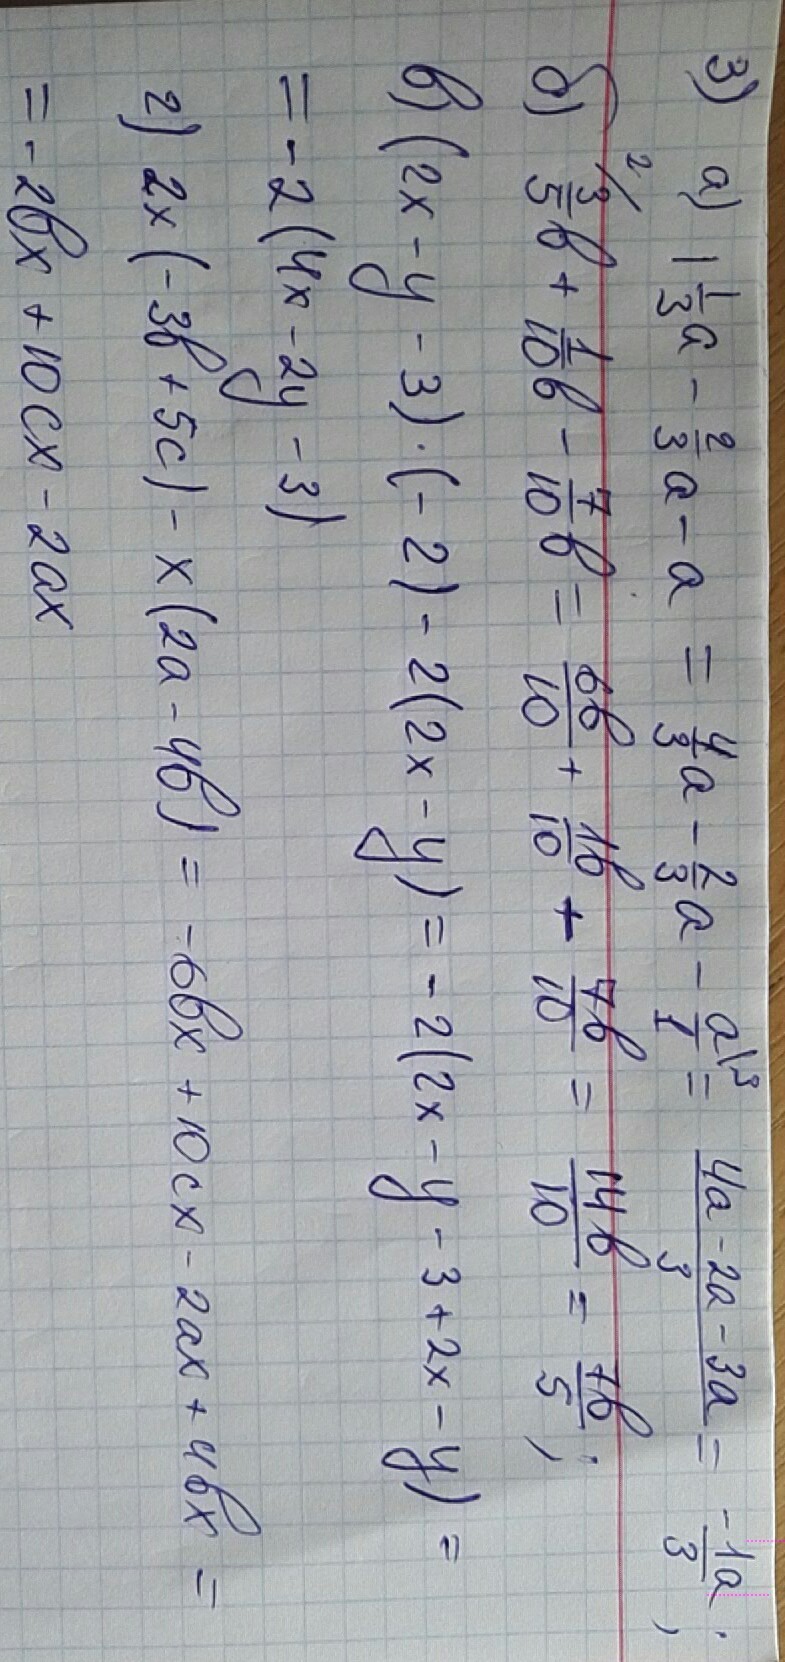 3) а) 1 1/3 a - 2/3 a - a = 4/3 a - 2/3 a - a\3/1 = (4a - 2a - 3a)/3 = -1a/3;
б) 2/ 3/5 b + 1/10 b - 7/10 b = 6b/10 + 1b/10 + 7b/10 = 14b/10 = 7b/5;
в) (2x - y - 3)·(-2) - 2(2x - y) = -2(2x - y - 3 + 2x - y) =
= -2(4x - 2y - 3)
г) 2x(-3b + 5c) - x(2a - 4b) = -6bx + 10cx - 2ax + 4bx =
= -2bx + 10cx - 2ax